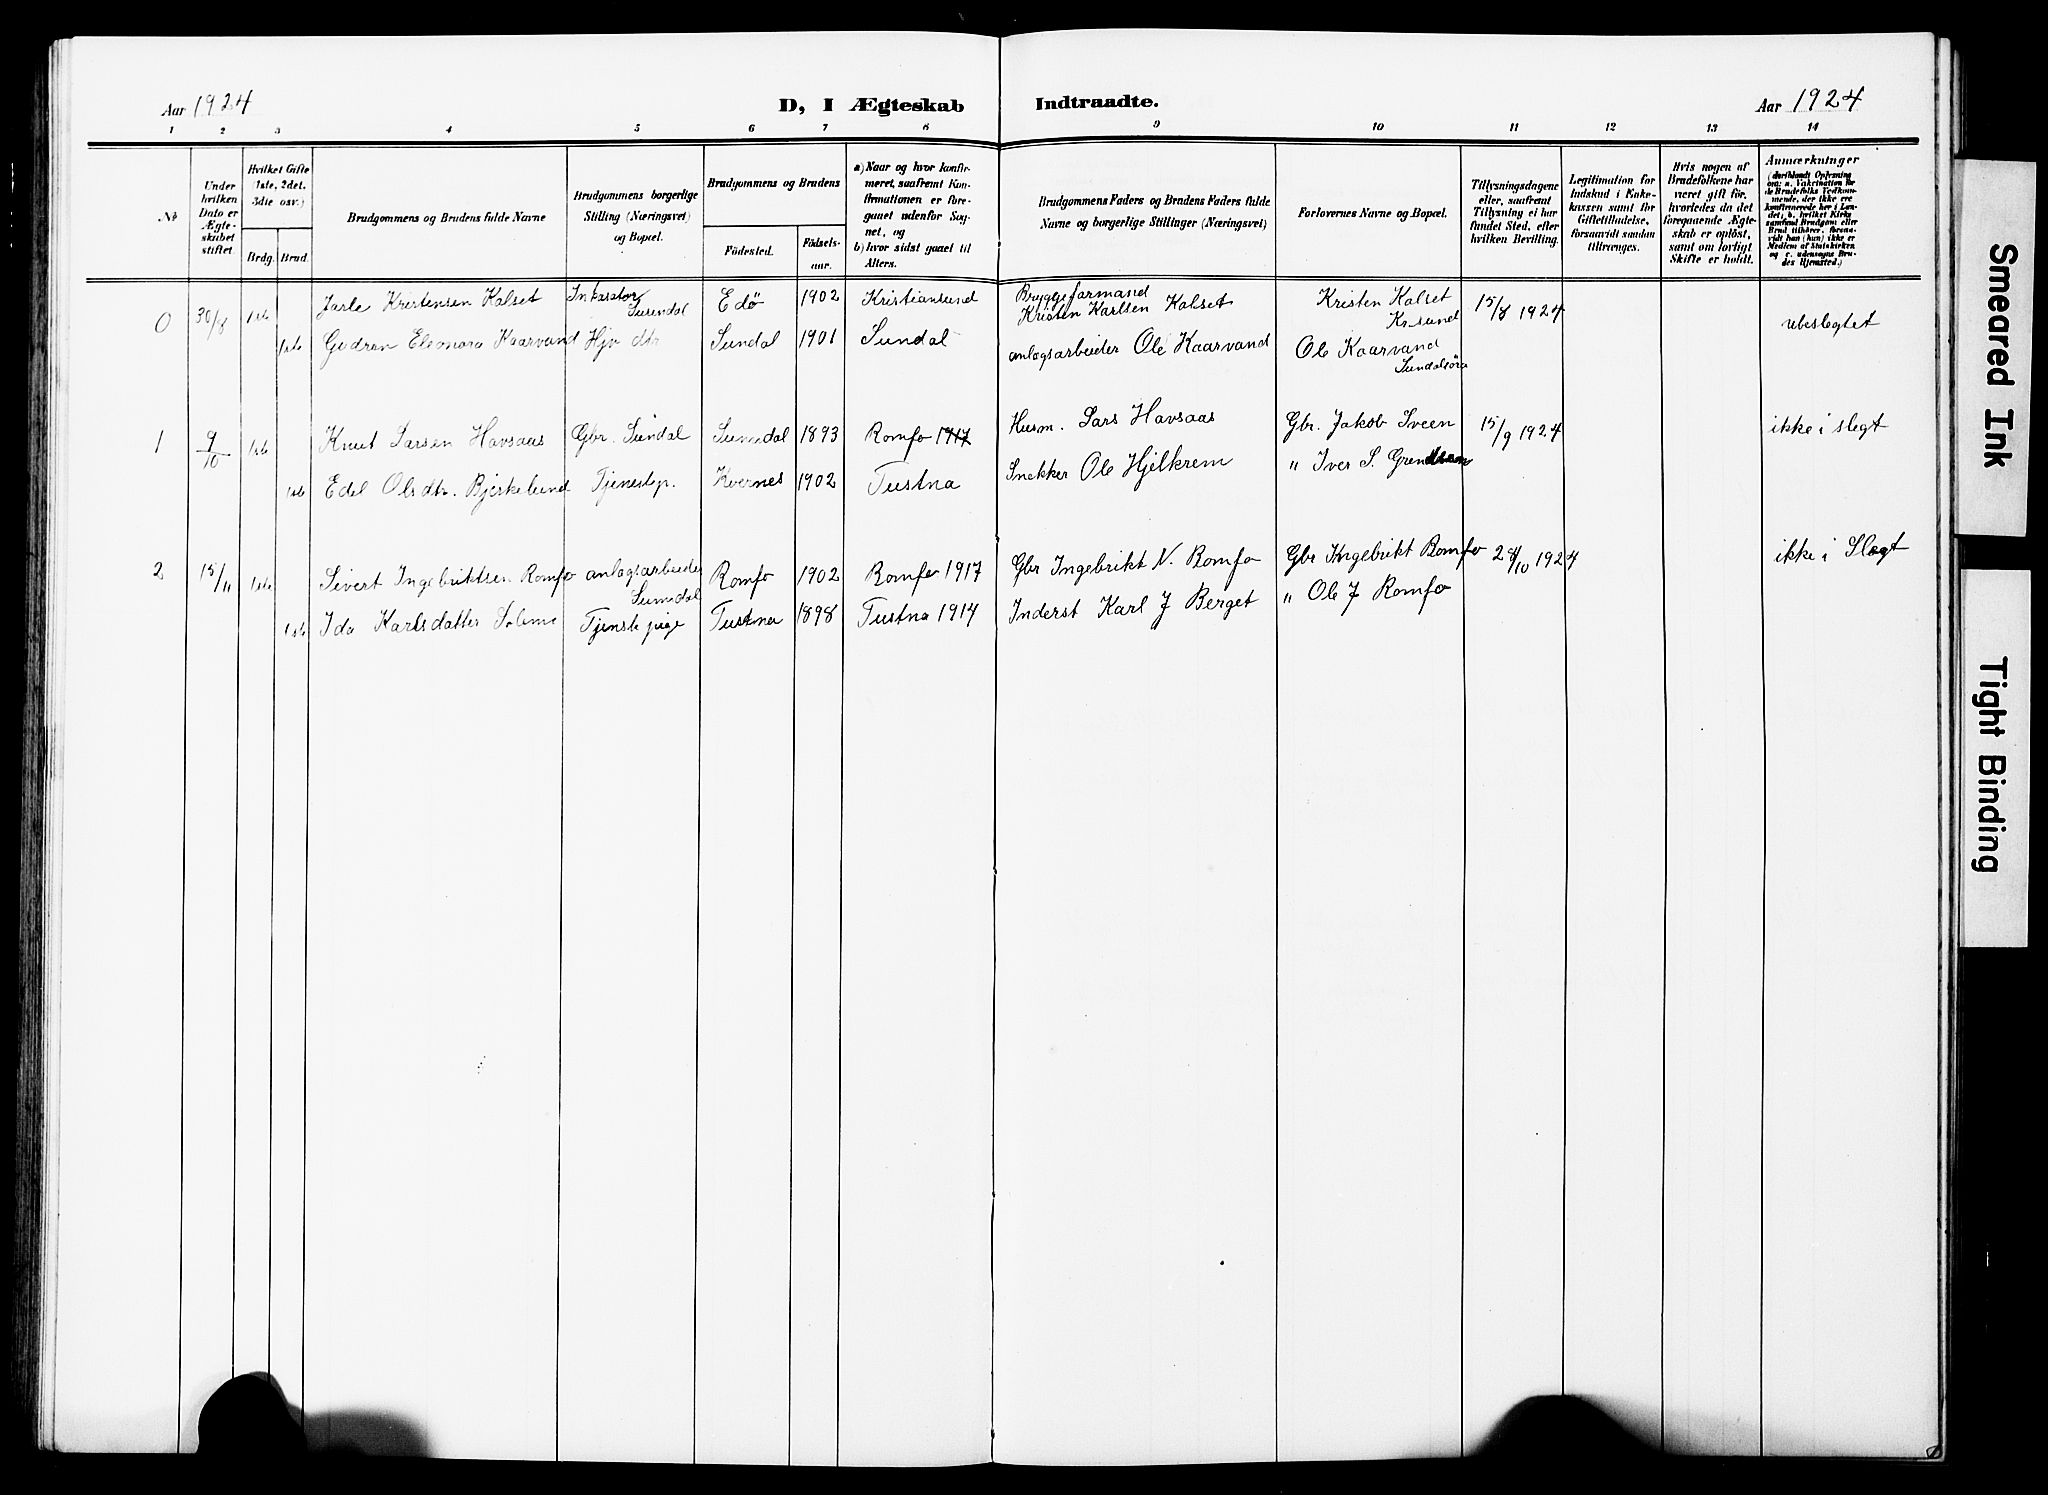 Aar 1924
D, I Ægteskab Indtraadte.
Aar 1924
1 2 3 4 5 6 7 8 9 10 11 12 13 14
№
Under hvilken Dato er Ægteskabet stiftet.
Hvilket Gifte (1ste, 2det. 3die osv.)
Brdg. Brud.
Brudgommens og Brudens fulde Navne
Brudgommens borgerlige Stilling (Næringsvei) og Bopæl.
Brudgommens og Brudens
Födested.
Födselsaar.
a) Naar og hvor konfirmeret, saafremt Konfirmationen er foregaaet udenfor Sognet, og
b) hvor sidst gaaet til Alters.
Brudgommens Faders og Brudens Faders fulde Navne og borgerlige Stillinger (Næringsvei)
Forlovernes Navne og Bopæl.
Tillysningsdagene eller, saafremt Tillysning ei har fundet Sted, efter hvilken Bevilling.
Legitimation for Indskud i Enkekassen samt för Giftetilladelse, forsaavidt saadan tiltrænges.
Hvis nogen af Brudefolkene har været gift för, hvorledes da det foregaaende Ægteskab er oplöst, samt om lovligt Skifte er holdt.
Anmærkninger
(deriblandt Oplysning om: a. Vakcination for de Brudefolks Vedkommende, der ikke ere konfirmerede her i Landet; b. hvilket Kirkesamfund Brudgom eller Brud tilhører, forsaavidt han (hun) ikke er Medlem af Statskirken og c. udensogns Brudes Hjemsted.)
0 30/8 1ste Jarle Kristensen Kalset Inkassator Surendal Edø 1902 Kristiansund Bryggeformand Kristen Karlsen Kalset Kristen Kalset Kr.sund 15/8 1924
1ste Gudrun Eleonora Kaarvand Hjv dtr Sundal 1901 Sundal anlægsarbeider Ole Kaarvand Ole Kaarvand Sundalsøra ubeslegtet
1 9/10 1ste Knut Larsen Havsaas Gbr. Sundal Sundal 1893 Romfo 1917 Husm. Lars Havsaas Gbr. Jakob Sveen 15/9 1924 ikke i slegt
1ste Edel Olsdtr. Bjerkelund Tjenestep. Kvernes 1902 Tustna Snekker Ole Hjelkrem " Iver S.
2 15/11 1ste Sivert Ingebriktsen Romfo anlægsarbeider Sunndal Romfo 1902 Romfo 1917 Gbr Ingebrikt N. Romfo Gbr Ingebrikt Romfo 28/10 1924 ikke i Slægt
1ste Ida Karlsdatter Tjenstepige Tustna 1898 Tustna 1914 Inderst Karl J Berget " Ole J Romfo
Smeared Ink
Tight Binding